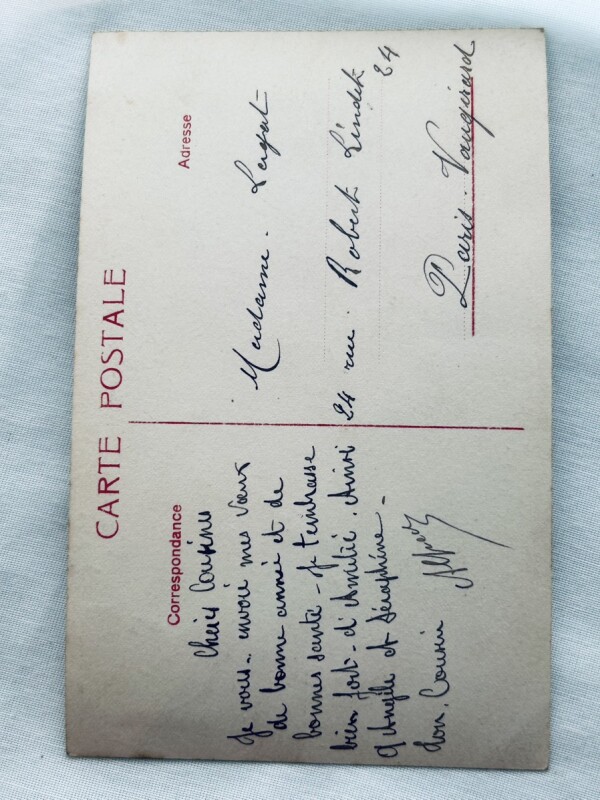 CARTE POSTALE
Correspondance
Chère Cousine
Je vous envoie mes vœux
de bonne année et de
bonnes santé - Je t'embrasse
bien fort - d'Amitié. Ainsi
q Angèle et Séraphine -
ton. Cousin
Adresse
Madame. Lagat
24 rue. Robert Lindet
24
Paris. Vaugirard